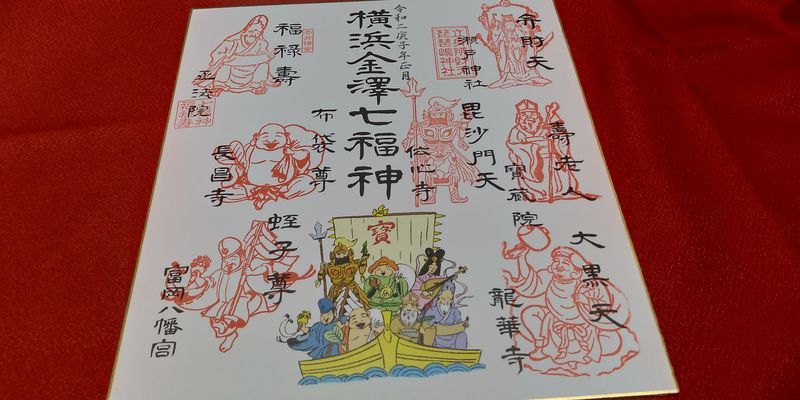 令和二庚子年正月
横浜金澤七福神
弁財天
瀬戸神社
琵琶嶋神社
壽老人
寶蔵院
大黒天
龍華寺
毘沙門天
伝心寺
布袋尊
長昌寺
蛭子尊
富岡八幡宮
福禄壽
正法院
寶